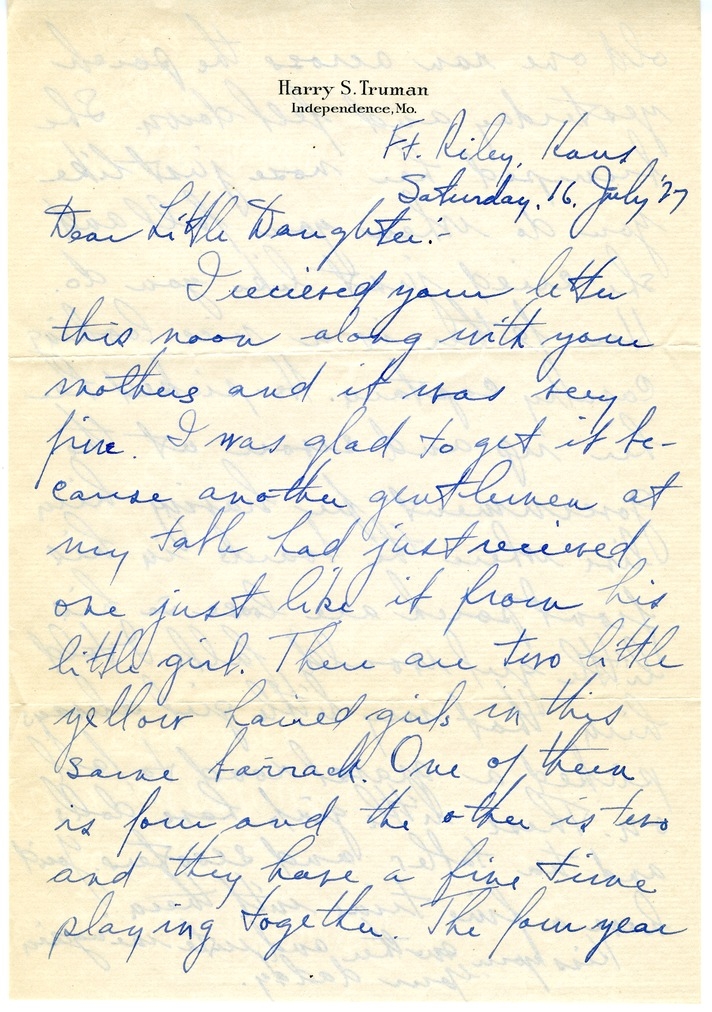 Harry S. Truman
Independence, Mo.
Ft. Riley, Kans
Saturday, 16, July '27
Dear Little Daughter:-
I recieved your letter
this noon along with your
mothers and it was very
fine. I was glad to get it be-
cause another gentlemen at
my table had just recieved
one just like it from his
little girl. There are two little
yellow haired girls in this
same barrack. One of them
is four and the other is two
and they have a fine time
playing together. The four year